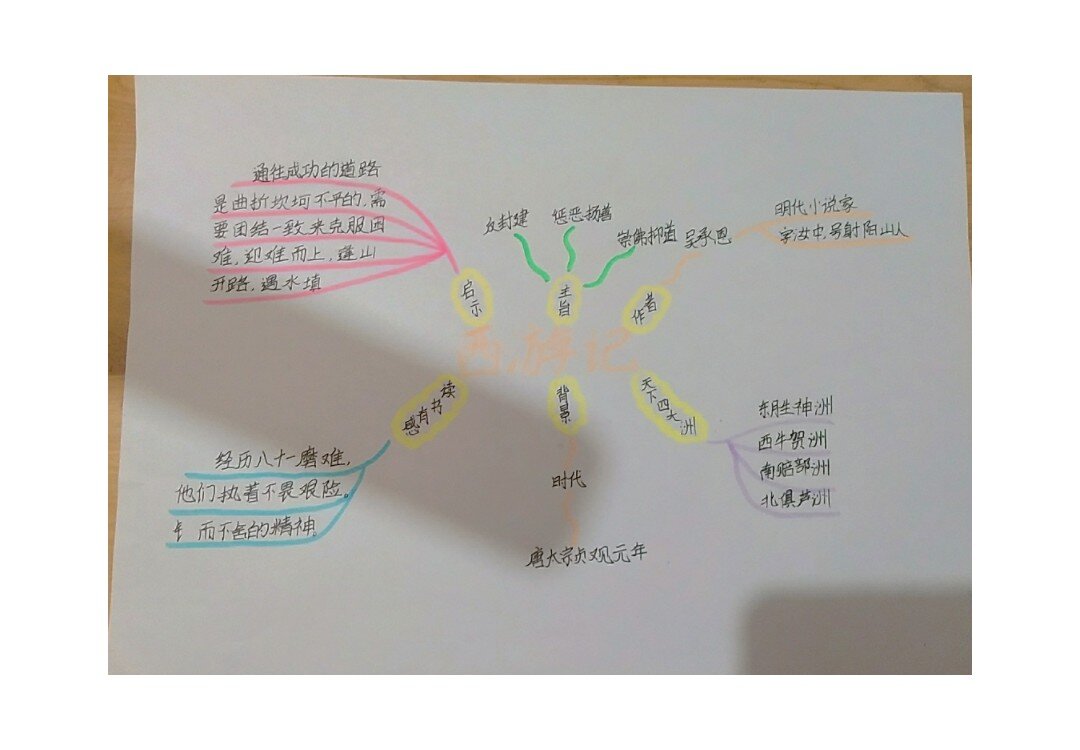 通往成功的道路
是曲折坎坷不平的,需
要团结一致来克服困
难,迎难而上,逢山
开路,遇水填
启示
反封建
惩恶扬善
崇佛抑道
主旨
吴承恩
明代小说家
字汝中,号射阳山人
作者
西游记
读书有感
经历八十一磨难,
他们执着不畏艰险。
而不舍的精神。
背景
时代
唐太宗贞观元年
天下四大洲
东胜神洲
西牛贺洲
南赔部洲
北俱芦洲